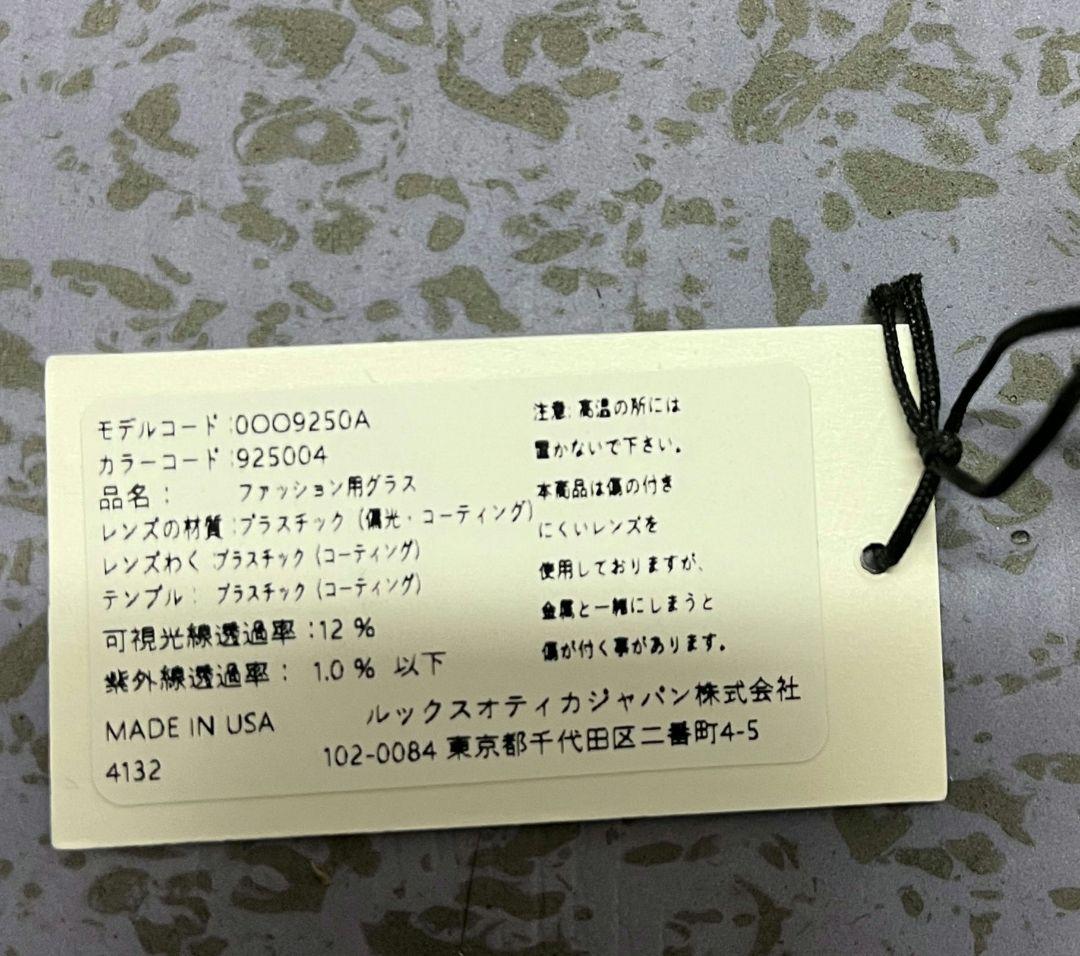 モデルコード :0OO9250A
カラーコード :925004
品名： ファッション用グラス
レンズの材質 :プラスチック (偏光・コーティング)
レンズわく :プラスチック (コーティング)
テンプル： プラスチック (コーティング)
可視光線透過率 :12 %
紫外線透過率： 1.0 % 以下
MADE IN USA
4132
注意: 高温の所には
置かないで下さい。
本商品は傷の付き
にくいレンズを
使用しておりますが、
金属と一緒にしまうと
傷が付く事があります。
ルックスオティカジャパン株式会社
102-0084 東京都千代田区二番町4-5